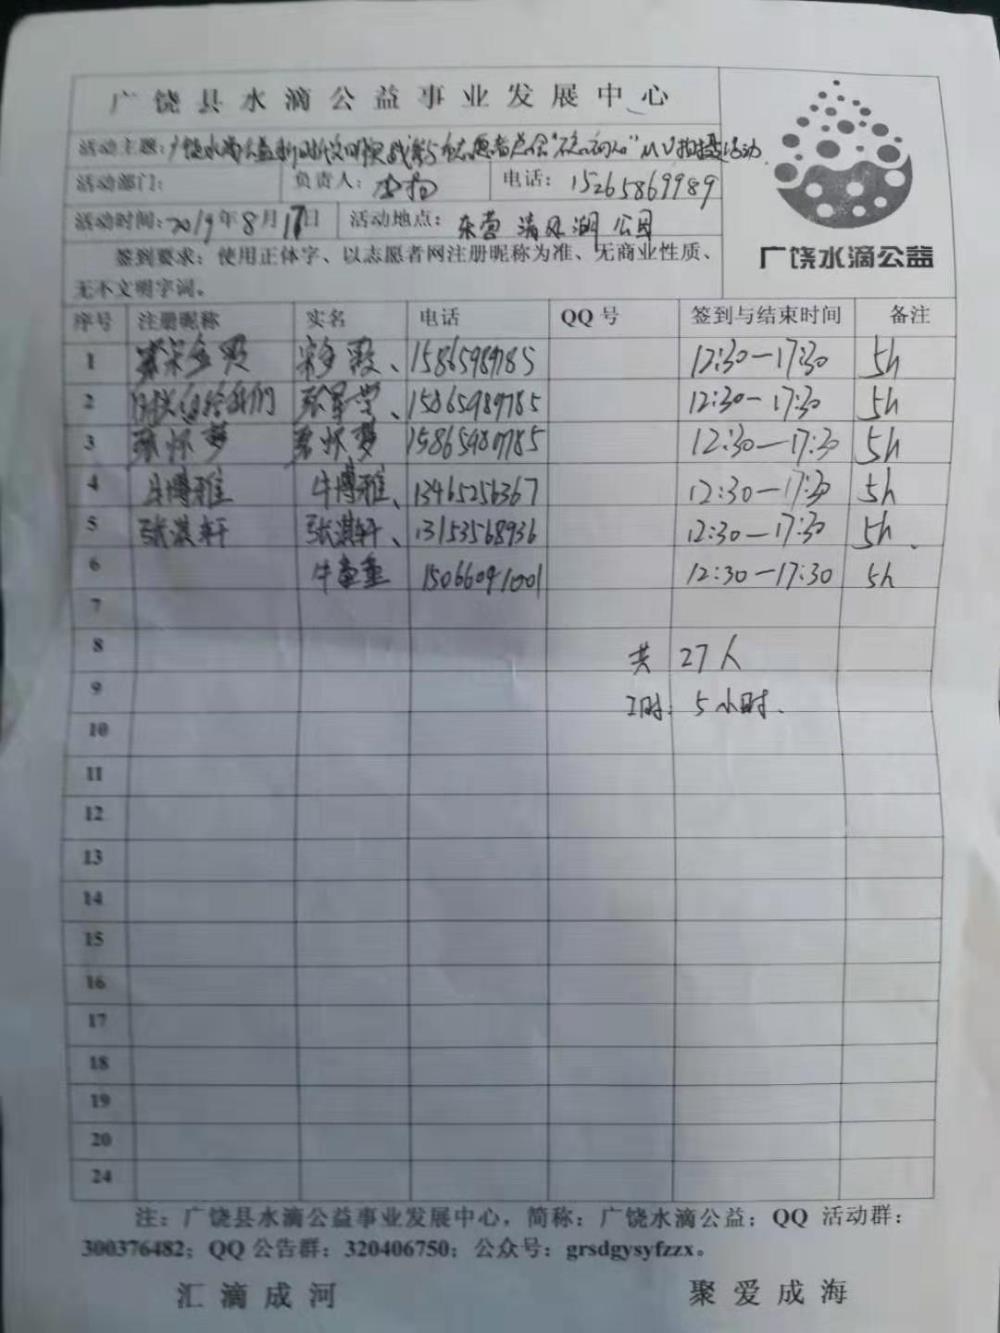 广饶县水滴公益事业发展中心
活动主题：广饶水滴公益新时代文明实践 志愿者 MV拍摄活动
活动部门： 负责人： 电话：15265869989
活动时间：2019年8月17日 活动地点：东营清风湖公园
签到要求：使用正体字、以志愿者网注册昵称为准、无商业性质、
无不文明字词。
广饶水滴公益
序号 注册昵称 实名 电话 QQ号 签到与结束时间 备注
1 15865989785 12:30—17:30 5h
2 15865989785 12:30—17:30 5h
3 怀梦 怀梦 15865989785 12:30—17:30 5h
4 牛博雅 牛博雅、 13465256367 12:30—17:30 5h
5 张淇轩 张淇轩、 13153568936 12:30—17:30 5h
6 牛童童 15066091001 12:30—17:30 5h
7
8 共 27人
9 工时 5小时
10
11
12
13
14
15
16
17
18
19
20
24
注：广饶县水滴公益事业发展中心，简称：广饶水滴公益；QQ 活动群：
300376482；QQ公告群：320406750；公众号：grsdgysyfzzx。
汇滴成河 聚爱成海